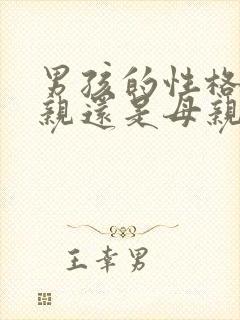 男孩的性格
親還是母親
王幸男